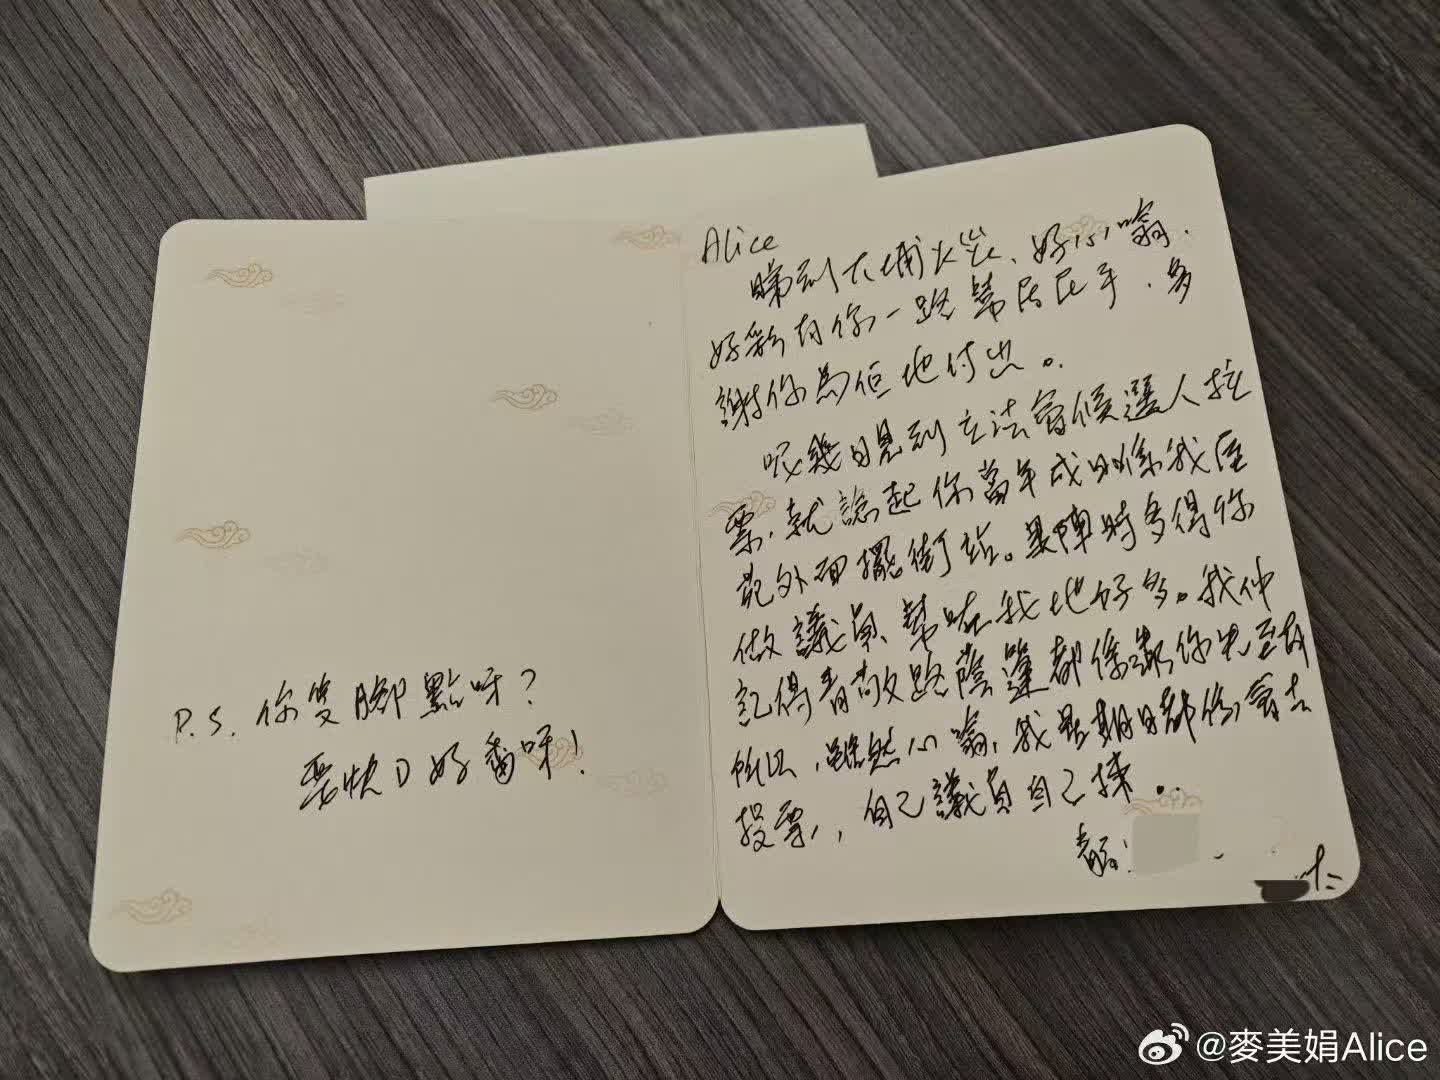 P.S. 你隻腳點呀？
要快D好番呀！
Alice
睇到大埔火災、好心噏．
好彩有你一路幫居民手．多
謝你為佢地付出。
呢幾日見到立法會候選人拉
票，就諗起你當年成日係我屋
苑外面擺街站。果陣時多得你
做議員、幫咗我地好多。我仲
記得青敬路蔭篷都係跟你先至有
所以，雖然心噏，我星期日都係會去
投票，，自己議員自己揀．．
@麥美娟Alice